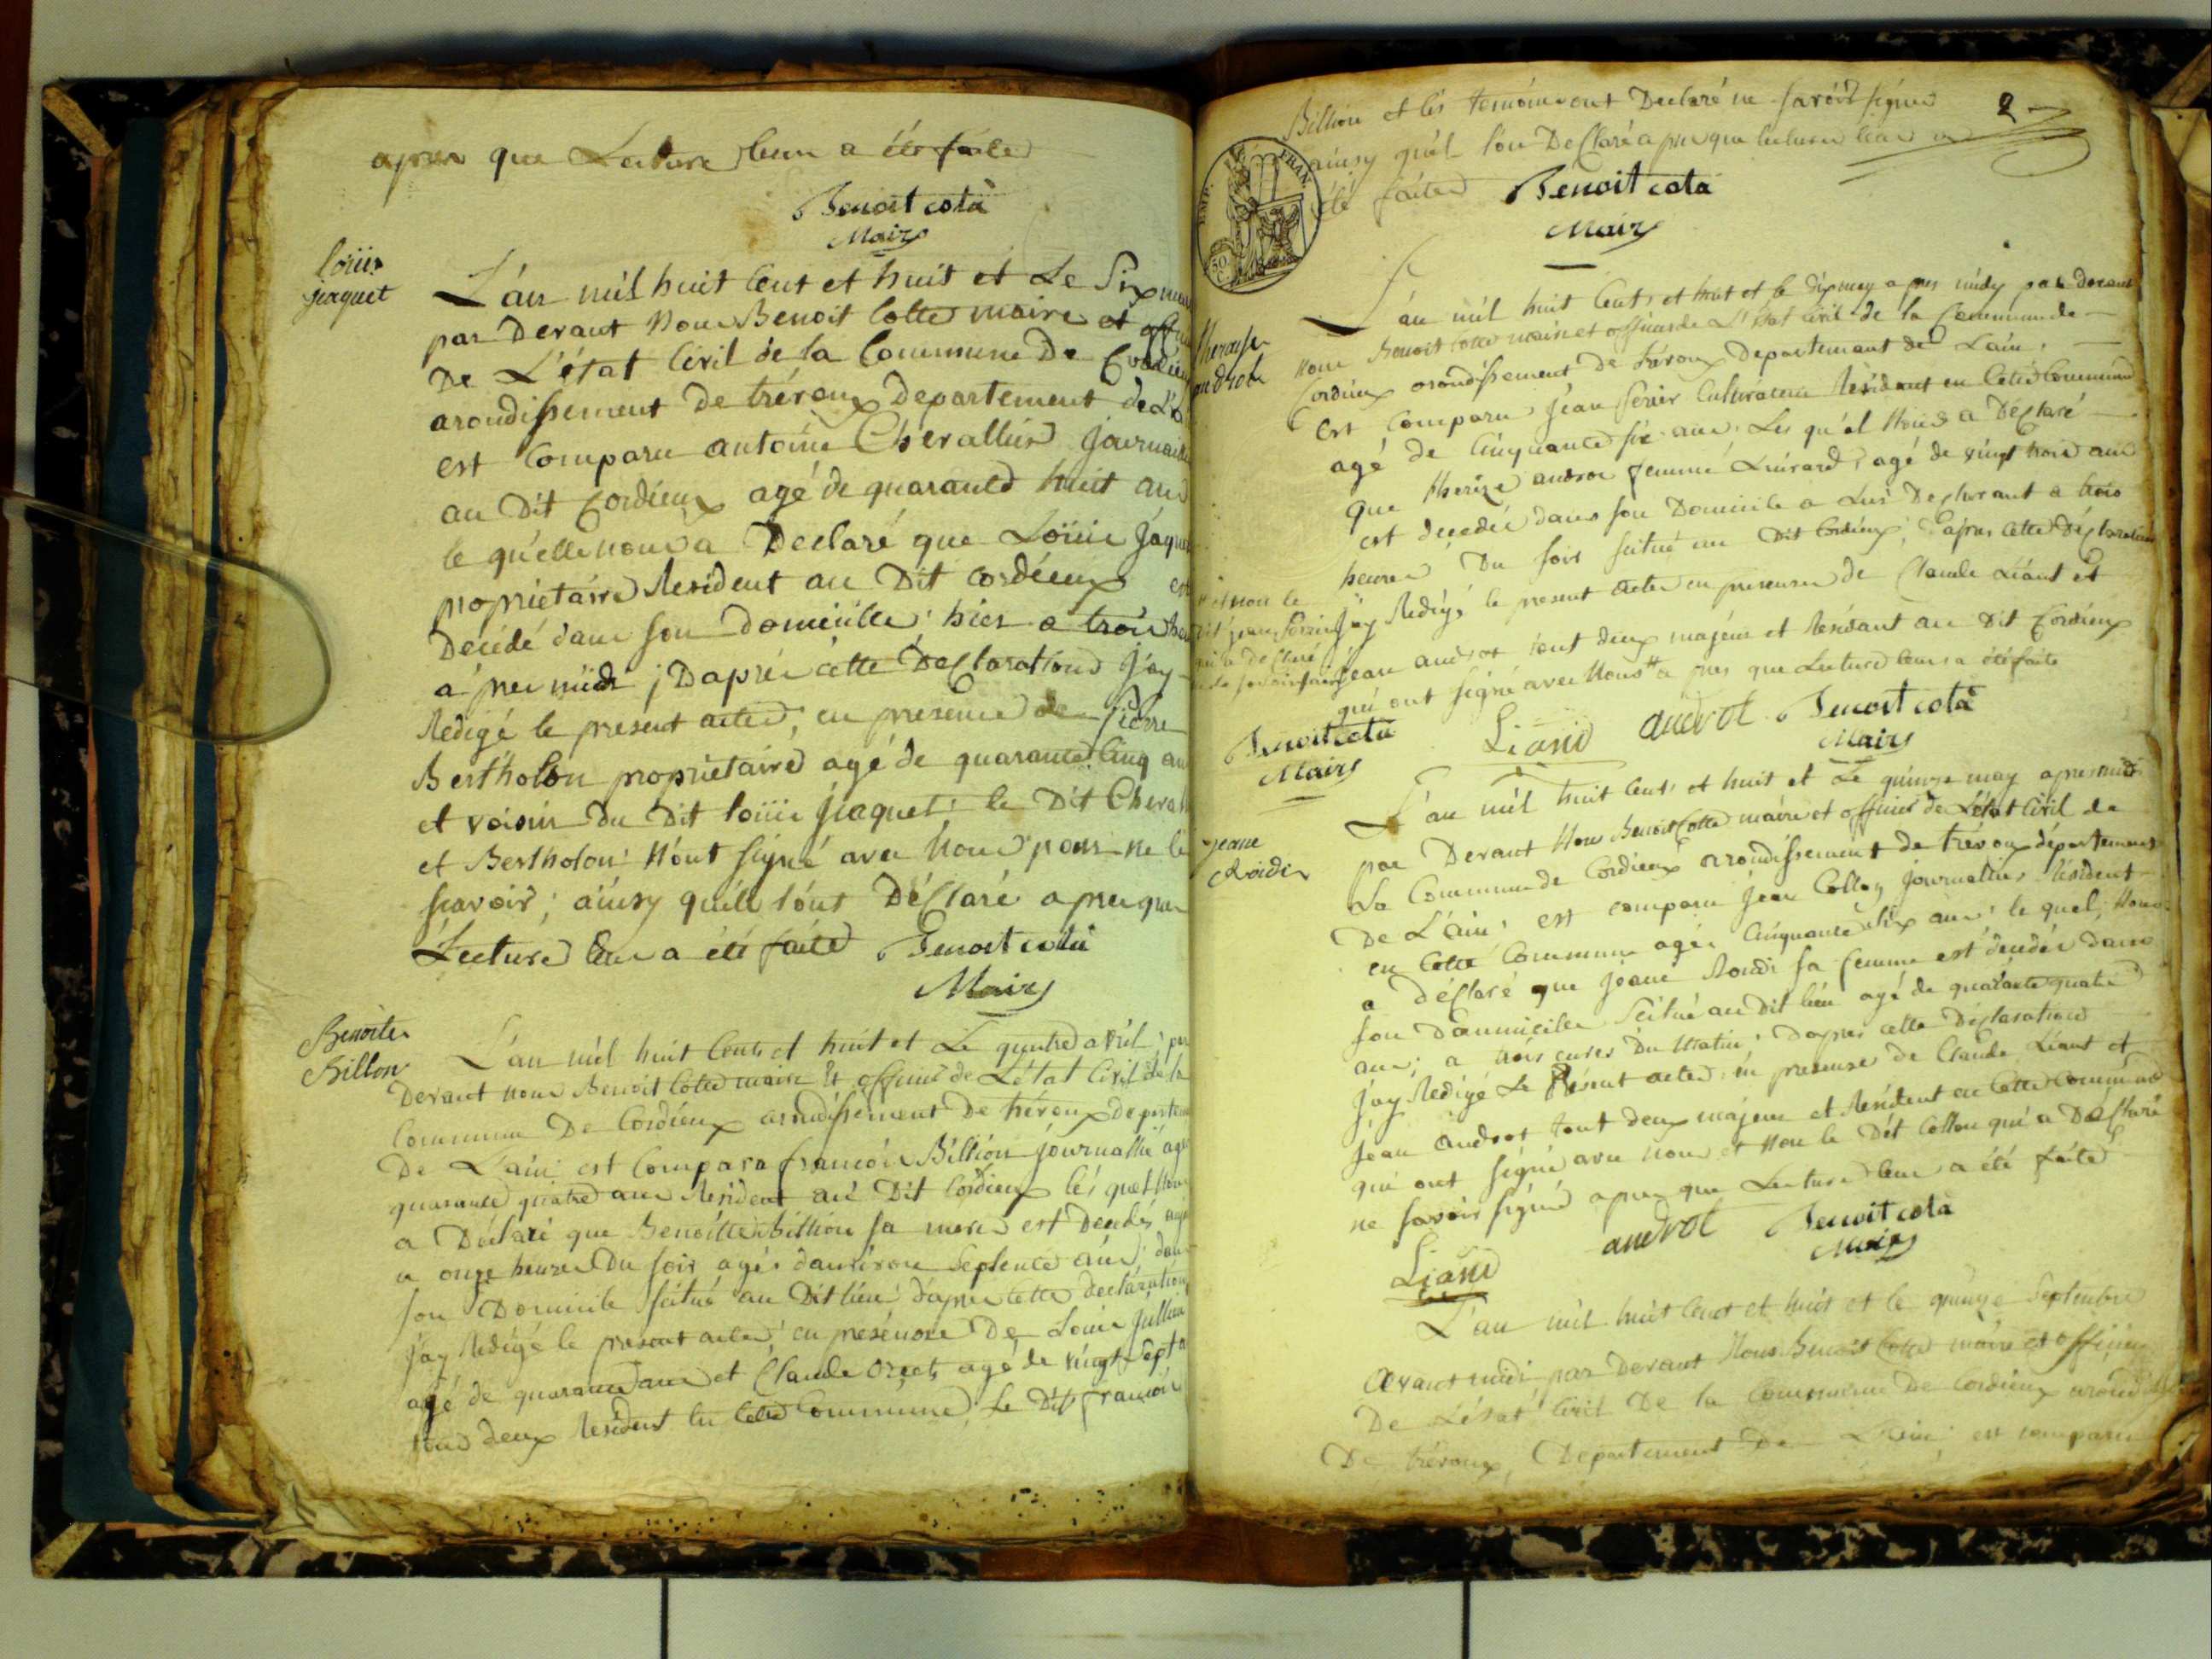 apres que Lecture leur a été faite
Benoit cota
Maire
loüis
jacquet
L'an mil huit Cent et huit et Le Six
par Devant Nous Benoit Cotte maire et
De L'état Civil de la Commune De
arondissement de trévoux Departement de
est Comparu antoine Chevallier
au Dit Cordieux agé de quarante huit ans
le quelle nous a Declaré que Loüis
proprietaire Resident au Dit Cordieux
Décédé dans son domicille hier a trois
a pres midi ; D'aprés cette Declaration J'ay
Redigé le present acte, en presence de pierre
Bertholon proprietaire agé de quarante Cinq
et voisin du Dit loüis jacquet, le Dit
et Bertholon n'ont signé avec Nous pour ne le
scavoir ; ainsy quils l'ont Déclaré apres que
Lecture leur a été faite Benoit cota
Maire
Benoite
Billon
L'an mil huit Cents et huit et Le avril par
Devant nous Benoit Cotte maire et officier de L'état Civil de la
Commune De Cordieux arondissement De trévoux
De L'ain est Comparu francois Billion journallié
quarante quatre ans Resident au Dit Cordieux lés quel Nous
a Déclaré que Benoitte Billion sa mere est Decedés
a onze heures Du soir agés d'anviron Septente ans
son Domicile scitué au Dit lieu d'apres Cette declaration
j'ay Redigé le present acte en presence De Louis
agé de quarante ans et Claude agé de vingt Sept
tous deux Resident en Cette Commune Le Dit francois
Billion et lés temoins ont Declaré ne savoir signer 2
ainsy qu'il l'on Desclaré a pres que lecture leur
été faite Benoit cota
Maire
EMP. FRAN.
50
L'an mil huit Cents et huit et le dix may a pres midy par devant
therese
androt
Nous Benoit Cotte maire et officier de L'état Civil de la Commune de
Cordieux arondissement de trévoux Departemant de L'ain.
est Comparu jean Cultivateur Résidant en Cette Commune
agé de Cinquante six ans, Les qu'el Nous a Déclaré
que therize androt femme agé de vingt trois ans
est décédée dans son Domicile a Lui Declarant a trois
heures Du soir scitué au Dit Cordieux, d'apres cette Déclaration
J'ay Redigé le present acte en presence de Claude Liaut et
jean androt tout deux majeur et Residant au Dit Cordieux
qui ont signé avec Nous # a pres que Lecture leurs a été faite
# et non le
dit jean
qui a declaré
Benoit cota
Maire
Liaud androt Benoit cota
Maire
L'an mil huit Cents et huit et Le quinze may apres midi
jeane
par Devant Nous Benoit Cotte maire et officier de L'état Civil de
La Commune de Cordieux arrondissement de trévoux département
De L'ain, est comparu jean Collon journallier Résident
en Cette Commune agé Cinquante six ans, le quel Nous
a déclaré que jeane sa femme est décédée dans
son Dommicile Scitué au Dit lieu agé de quarante quatre
ans, a trois eures Du Matin, Dapres cette Déclaration
j'ay Redigé Le Présent acte en presense de Claude Liaut et
jean androt tout deux majeur et Resident en Cette Commune
qui ont signé avec nous et Non le Dit Collon qui a Déclaré
ne savoir signé apres que Lecture leur a été faite
Liaud androt Benoit cota
Maire
L'an mil huit Cent et huit et le quinze Septembre
avant midi par Devant Nous Benoit Cotte maire et officier
De L'état Civil De la Commune De Cordieux
De trévoux, Departement De L'ain, est comparu